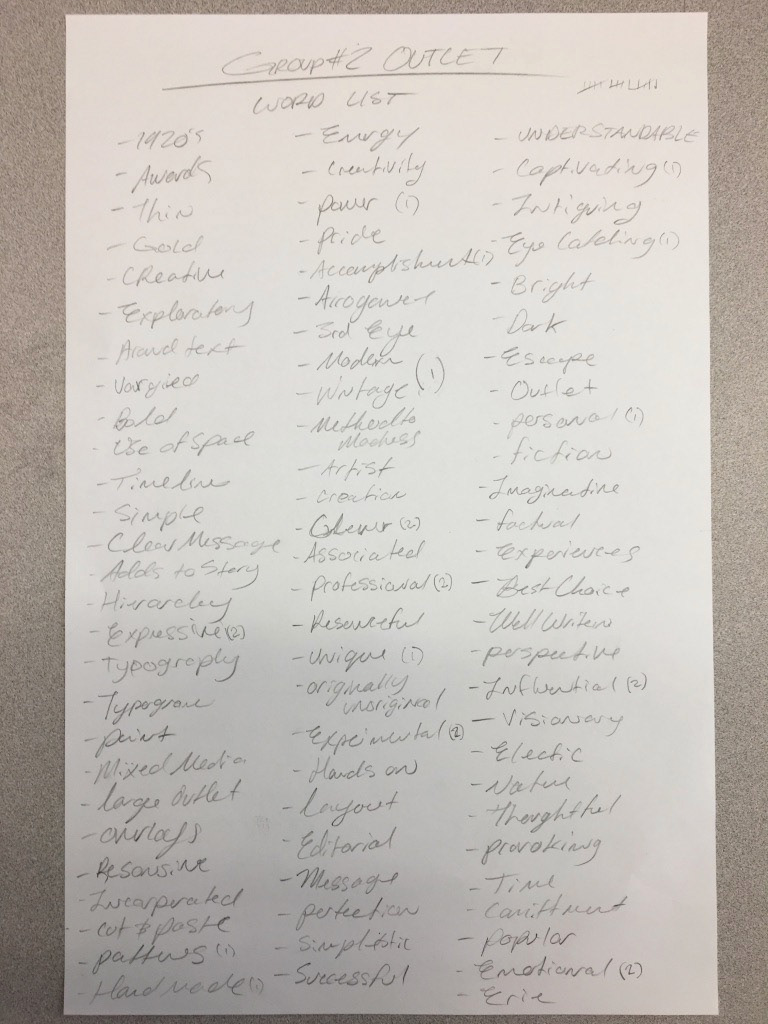 GROUP #2 OUTLET
WORD LIST
- 1920's
- Awards
- Thin
- Gold
- CReative
- Exploratory
- Around text
- Bold
- Use of Space
- Timeline
- Simple
- Clear Message
- Adds to Story
- Hierarchy
- Expressive (2)
- Typography
- paint
- Mixed Media
- large Outlet
- overlays
- Incorperated
- cut & paste
- patterns (1)
- Handmade (1)
- Energy
- Creativity
- power (1)
- Pride
- Accomplishment (1)
- Arrogance
- 3rd Eye
- Modern
- Vintage (1)
- Method to
Madness
- Artist
- creation
- Clever (2)
- Associated
- Professional (2)
- Resourceful
- Unique (1)
- originally
unoriginal
- Expeimental (2)
- Hands on
- Layout
- Editorial
- Message
- perfection
- Simplistic
- Successful
- UNDERSTANDABLE
- Captivating (1)
- Intiguing
- Eye Catching (1)
- Bright
- Dark
- Escape
- Outlet
- personal (1)
- fiction
- Imaginative
- factual
- Experiences
- Best Choice
- Well Writen
- perspective
- Influential (2)
- Visionary
- Electic
- Nature
- Thoughtful
- provoking
- Time
- popular
- Emotional (2)
- Erie